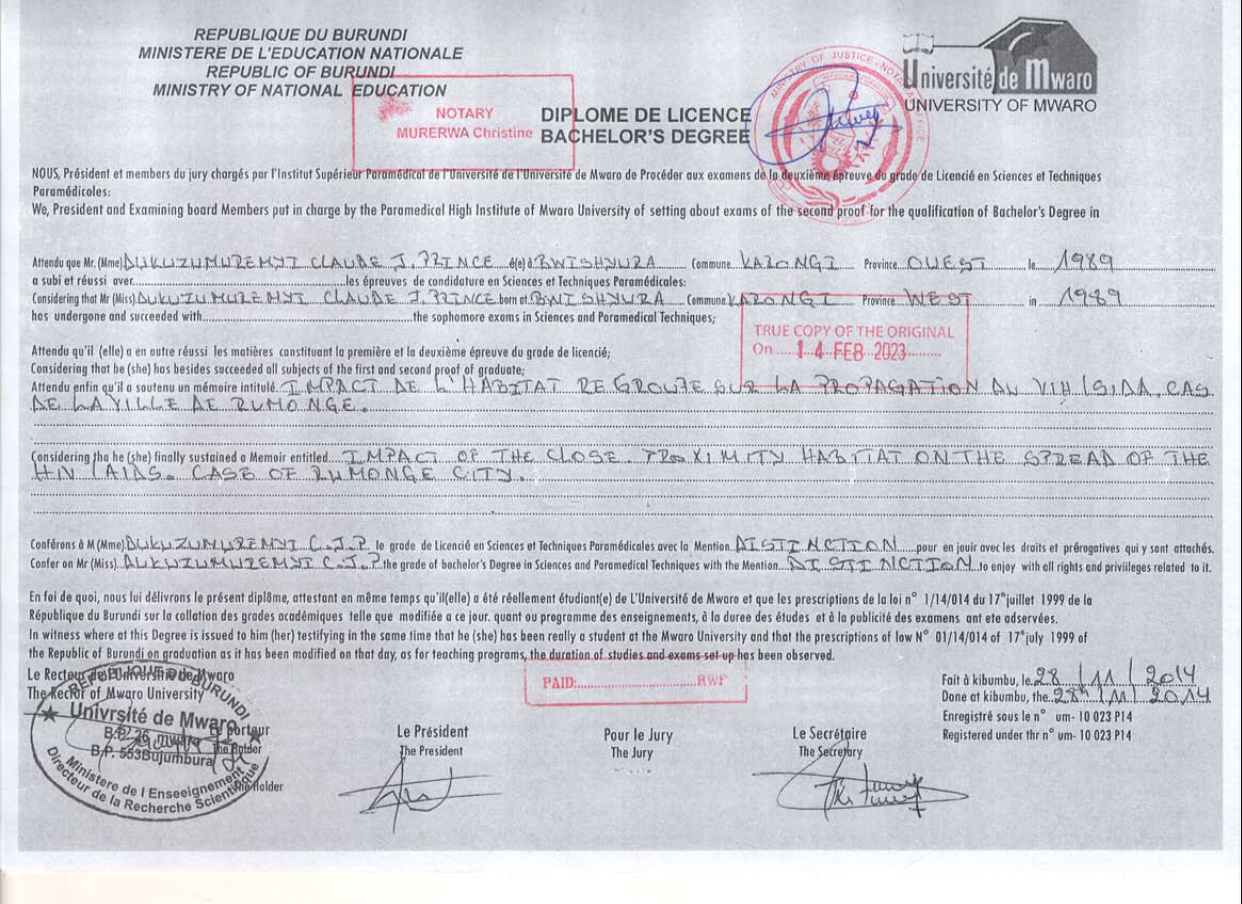 REPUBLIQUE DU BURUNDI
MINISTERE DE L'EDUCATION NATIONALE
REPUBLIC OF BURUNDI
MINISTRY OF NATIONAL EDUCATION
NOTARY
MURERWA Christine
MINISTRY OF JUSTICE - NOTARY OFFICE
Université de Mwaro
UNIVERSITY OF MWARO
DIPLOME DE LICENCE
BACHELOR'S DEGREE
NOUS, Président et members du jury chargés par l'Institut Supérieur Paramédical de l'Université de l'Université de Mwaro de Procéder aux examens de la deuxième épreuve du grade de Licencié en Sciences et Techniques
Paramédicoles:
We, President and Examining board Members put in charge by the Paramedical High Institute of Mwaro University of setting about exams of the second proof for the qualification of Bachelor's Degree in
Attendu que Mr. (Mme) DUKUZUMUREMYI CLAUDE J. PRINCE é(e) à BWISHYURA Commune KARONGI Province OUEST le 1989
a subi et réussi aver les épreuves de condidature en Sciences et Techniques Paramédicales:
Considering that Mr (Miss) DUKUZUMUREMYI CLAUDE J. PRINCE born at BWISHYURA Commune KARONGI Province WEST in 1989
has undergone and succeeded with the sophomore exams in Sciences and Paramedical Techniques;
TRUE COPY OF THE ORIGINAL
On 14 FEB 2023
Attendu qu'il (elle) a en outre réussi les matières constituant la première et la deuxième épreuve du grade de licencié;
Considering that he (she) has besides succeeded all subjects of the first and second proof of graduate;
Attendu enfin qu'il a soutenu un mémoire intitulé. IMPACT DE L'HABITAT REGROUPE SUR LA PROPAGATION DU VIH/SIDA, CAS
DE LA VILLE DE RUMONGE.
Considering tha he (she) finally sustained a Memoir entitled IMPACT OF THE CLOSE PROXIMITY HABITAT ON THE SPREAD OF THE
HIV/AIDS. CASE OF RUMONGE CITY.
Conférons à M (Mme) DUKUZUMUREMYI C.J.P. le grade de Licencié en Sciences et Techniques Paramédicales avec la Mention DISTINCTION pour en jouir avec les droits et prérogatives qui y sont attachés.
Confer on Mr (Miss) DUKUZUMUREMYI C.J.P the grade of bachelor's Degree in Sciences and Paramedical Techniques with the Mention DISTINCTION to enjoy with all rights and priviileges related to it.
En foi de quoi, nous lui délivrons le présent diplôme, attestant en même temps qu'il(elle) a été réellement étudiant(e) de L'Université de Mwaro et que les prescriptions de la loi n° 1/14/014 du 17°juillet 1999 de la
République du Burundi sur la collation des grades académiques telle que modifiée a ce jour. quant ou programme des enseignements, à la duree des études et à la publicité des examens ont ete adservées.
In witness where at this Degree is issued to him (her) testifying in the same time that he (she) has been really a student at the Mwaro University and that the prescriptions of law N° 01/14/014 of 17°july 1999 of
the Republic of Burundi on graduation as it has been modified on that day, as for teaching programs, the duration of studies and exams set up has been observed.
Le Recteur de l'Université de Mwaro
The Rector of Mwaro University
REPUBLIQUE DU BURUNDI
Univrsité de Mwaro
B.P. 26 mwaro
B.P. 553Bujumbura
Ministere de l Enseeignement
Directeur de la Recherche Scientifique
Le porteur
The Holder
The Holder
PAID: RWF
Le Président
The President
Pour le Jury
The Jury
Le Secrétaire
The Secretary
Fait à kibumbu, le 28/11/2014
Done at kibumbu, the 28th/11/2014
Enregistré sous le n° um- 10 023 P14
Registered under thr n° um- 10 023 P14